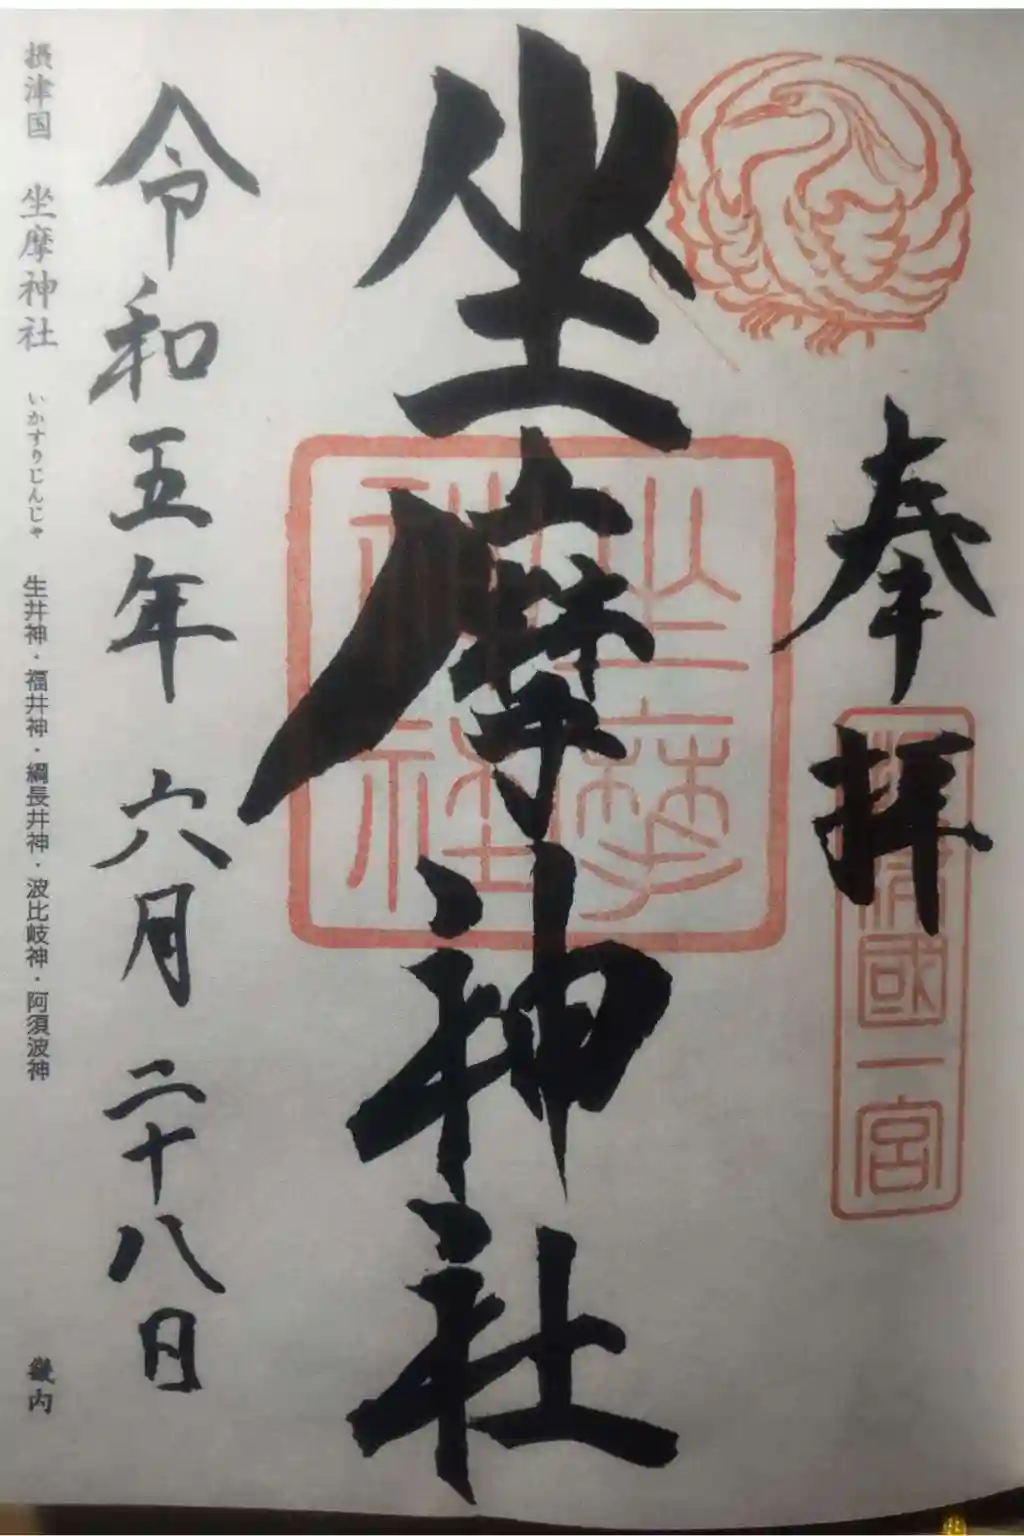 奉拝
摂津國一宮
坐摩神社
坐摩神社
令和五年 六月 二十八日
摂津国 坐摩神社 いかすりじんじゃ 生井神・福井神・綱長井神・波比岐神・阿須波神 畿内